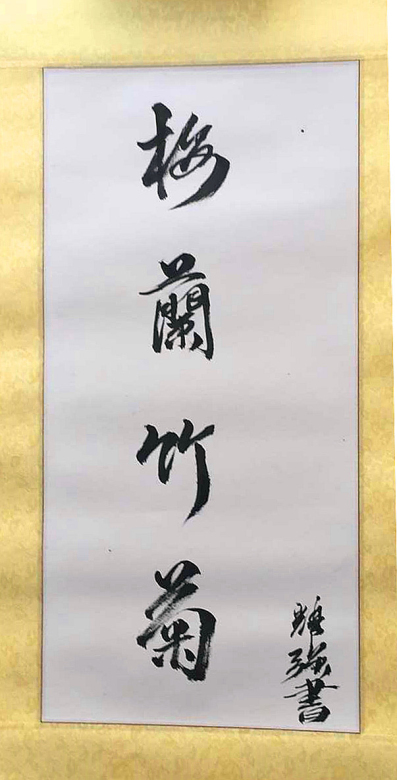 梅蘭竹菊
輝強書